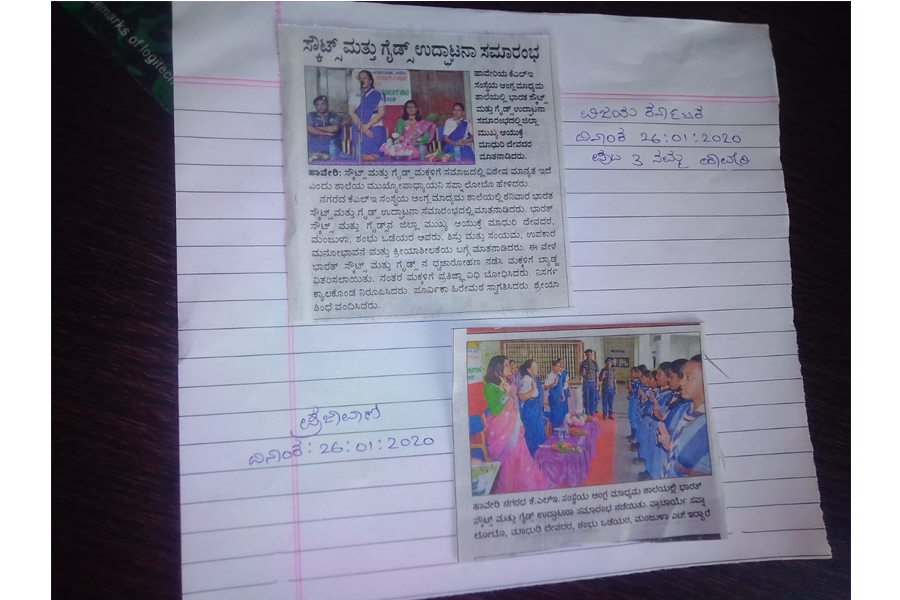 emarks of logitech
ಸ್ಕೌಟ್ಸ್ ಮತ್ತು ಗೈಡ್ಸ್ ಉದ್ಘಾಟನಾ ಸಮಾರಂಭ
ಹಾವೇರಿಯ ಕೆಎಲ್‌ಇ
ಸಂಸ್ಥೆಯ ಆಂಗ್ಲ ಮಾಧ್ಯಮ
ಶಾಲೆಯಲ್ಲಿ ಭಾರತ ಸ್ಕೌಟ್ಸ್
ಮತ್ತು ಗೈಡ್ಸ್ ಉದ್ಘಾಟನಾ
ಸಮಾರಂಭದಲ್ಲಿ ಜಿಲ್ಲಾ
ಮುಖ್ಯ ಆಯುಕ್ತೆ
ಮಾಧುರಿ ದೇವದರ
ಮಾತನಾಡಿದರು.
ಹಾವೇರಿ: ಸ್ಕೌಟ್ಸ್ ಮತ್ತು ಗೈಡ್ಸ್ ಮಕ್ಕಳಿಗೆ ಸಮಾಜದಲ್ಲಿ ವಿಶೇಷ ಮಾನ್ಯತೆ ಇದೆ
ಎಂದು ಶಾಲೆಯ ಮುಖ್ಯೋಪಾಧ್ಯಾಯಿನಿ ಸಪ್ನಾ ಲೋಬೋ ಹೇಳಿದರು.
ನಗರದ ಕೆಎಲ್‌ಇ ಸಂಸ್ಥೆಯ ಆಂಗ್ಲ ಮಾಧ್ಯಮ ಶಾಲೆಯಲ್ಲಿ ಶನಿವಾರ ಭಾರತ
ಸ್ಕೌಟ್ಸ್ ಮತ್ತು ಗೈಡ್ಸ್ ಉದ್ಘಾಟನಾ ಸಮಾರಂಭದಲ್ಲಿ ಮಾತನಾಡಿದರು. ಭಾರತ್
ಸ್ಕೌಟ್ಸ್ ಮತ್ತು ಗೈಡ್ಸ್‌ನ ಜಿಲ್ಲಾ ಮುಖ್ಯ ಆಯುಕ್ತೆ ಮಾಧುರಿ ದೇವದರ,
ಮಂಜುಳಾ, ಶಂಭು ಒಡೆಯರ ಅವರು, ಶಿಸ್ತು ಮತ್ತು ಸಂಯಮ, ಉಪಕಾರ
ಮನೋಭಾವನೆ ಮತ್ತು ಕ್ರೀಯಾಶೀಲತೆಯ ಬಗ್ಗೆ ಮಾತನಾಡಿದರು. ಈ ವೇಳೆ
ಭಾರತ್ ಸ್ಕೌಟ್ಸ್ ಮತ್ತು ಗೈಡ್ಸ್ ನ ಧ್ವಜಾರೋಹಣ ನಡೆಸಿ ಮಕ್ಕಳಿಗೆ ಬ್ಯಾಡ್ಜ
ವಿತರಿಸಲಾಯಿತು. ನಂತರ ಮಕ್ಕಳಿಗೆ ಪ್ರತಿಜ್ಞಾ ವಿಧಿ ಬೋಧಿಸಿದರು. ನಿಸರ್ಗ
ಕ್ಯಾಲಕೊಂಡ ನಿರೂಪಿಸಿದರು. ಪೂರ್ವಿಕಾ ಹಿರೇಮಠ ಸ್ವಾಗತಿಸಿದರು. ಶ್ರೇಯಾ
ಶಿಂಧೆ ವಂದಿಸಿದರು.
ವಿಜಯ ಕರ್ನಾಟಕ
ದಿನಾಂಕ 26:01:2020
ಪುಟ 3 ನಮ್ಮ ಹಾವೇರಿ
ಪ್ರಜಾವಾಣಿ
ದಿನಾಂಕ: 26:01:2020
ಹಾವೇರಿ ನಗರದ ಕೆ.ಎಲ್‌ಇ. ಸಂಸ್ಥೆಯ ಆಂಗ್ಲ ಮಾಧ್ಯಮ ಶಾಲೆಯಲ್ಲಿ ಭಾರತ್
ಸ್ಕೌಟ್ಸ್ ಮತ್ತು ಗೈಡ್ಸ್ ಉದ್ಘಾಟನಾ ಸಮಾರಂಭ ನಡೆಯಿತು. ಪ್ರಾಚಾರ್ಯೆ ಸಪ್ನಾ
ಲೋಬೊ, ಮಾಧುರಿ ದೇವದರ, ಶಂಭು ಒಡೆಯರ, ಮಂಜುಳಾ ಎಚ್ ಇದ್ದಾರೆ